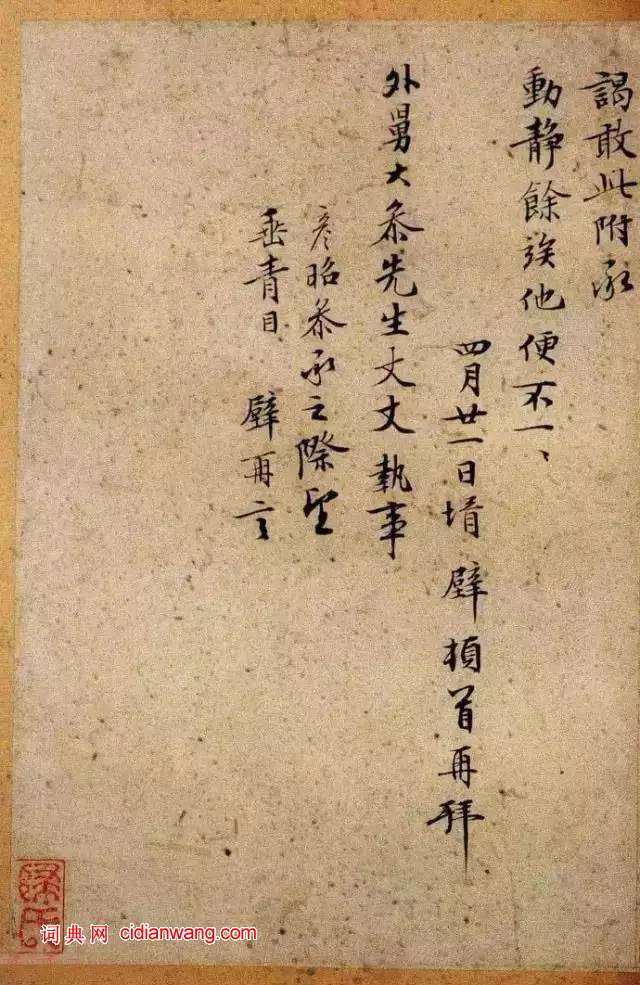 謁敢此附承
動静餘俟他便不一、
四月廿一日壻 壁頓首再拜
外舅大叅先生丈丈執事
彦昭叅承之際望
垂青目 壁再言
词典网 cidianwang.com